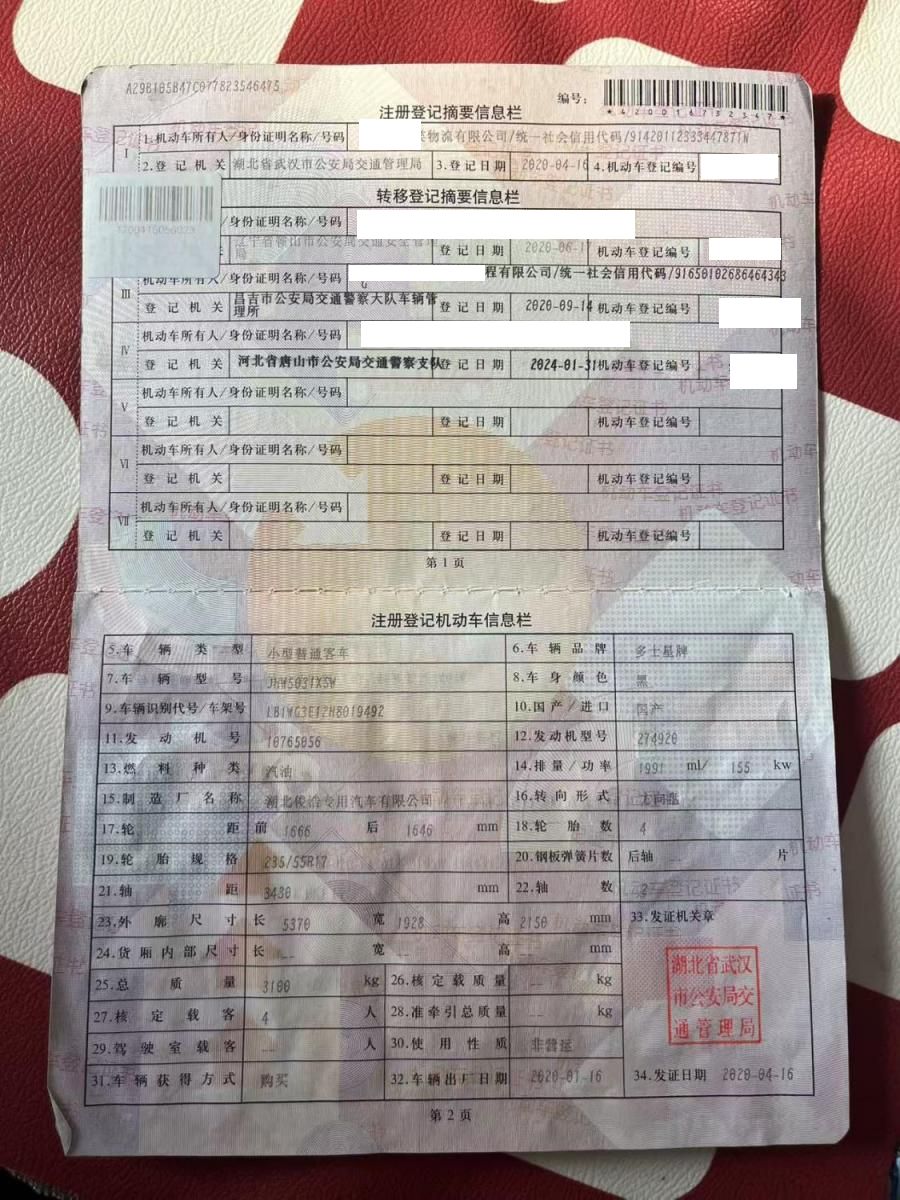 A29B105B47C077823546475
编号：
*420016732347*
注册登记摘要信息栏
I 1.机动车所有人/身份证明名称/号码 物流有限公司/统一社会信用代码/91420112333447871N
2.登记机关 湖北省武汉市公安局交通管理局 3.登记日期 2020-04-16 4.机动车登记编号
转移登记摘要信息栏
/身份证明名称/号码
1200415056023
关 辽宁省鞍山市公安局交通安全管 局 登记日期 2020-06-1 机动车登记编号
III 机动车所有人/身份证明名称/号码 程有限公司/统一社会信用代码/91650102686464343
登记机关 昌吉市公安局交通警察大队车辆管理所 登记日期 2020-09-14 机动车登记编号
IV 机动车所有人/身份证明名称/号码
登记机关 河北省唐山市公安局交通警察支队 登记日期 2024-01-31 机动车登记编号
V 机动车所有人/身份证明名称/号码
登记机关 登记日期 机动车登记编号
VI 机动车所有人/身份证明名称/号码
登记机关 登记日期 机动车登记编号
VII 机动车所有人/身份证明名称/号码
登记机关 登记日期 机动车登记编号
第1页
注册登记机动车信息栏
5.车辆类型 小型普通客车 6.车辆品牌 多士星牌
7.车辆型号 JHW5031X5W 8.车身颜色 黑
9.车辆识别代号/车架号 LB1WG3E12H8019492 10.国产/进口 国产
11.发动机号 10765056 12.发动机型号 274920
13.燃料种类 汽油 14.排量/功率 1991 ml/ 155 kw
15.制造厂名称 湖北俊浩专用汽车有限公司 16.转向形式 方向盘
17.轮距 前 1666 后 1646 mm 18.轮胎数 4
19.轮胎规格 235/55R17 20.钢板弹簧片数 后轴 -- 片
21.轴距 3430 mm 22.轴数 2
23.外廓尺寸 长 5370 宽 1928 高 2150 mm 33.发证机关章
24.货厢内部尺寸 长 -- 宽 -- 高 -- mm
25.总质量 3100 kg 26.核定载质量 -- kg
湖北省武汉
市公安局交
通管理局
27.核定载客 4 人 28.准牵引总质量 -- kg
29.驾驶室载客 -- 人 30.使用性质 非营运
31.车辆获得方式 购买 32.车辆出厂日期 2020-01-16 34.发证日期 2020-04-16
第2页